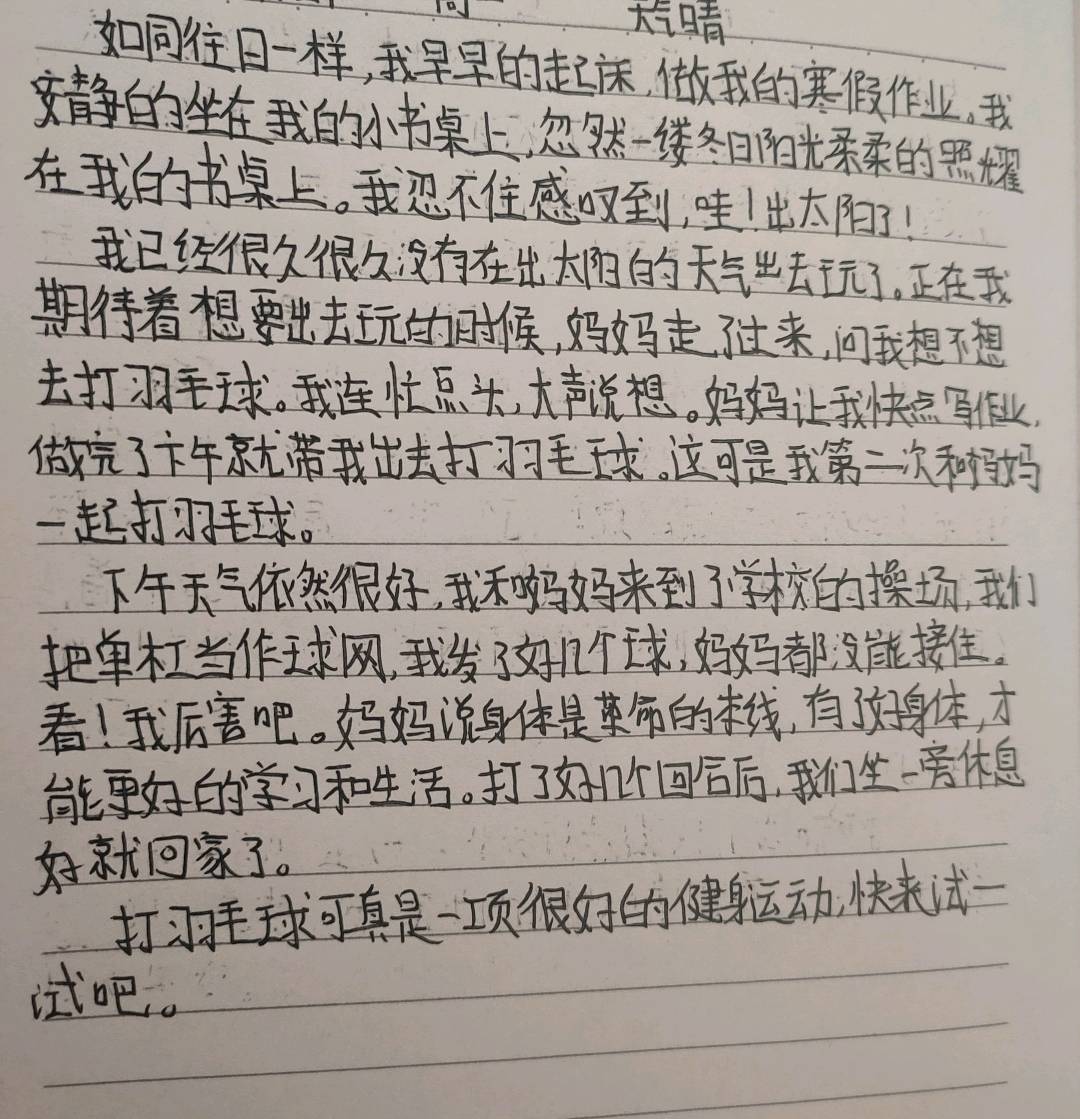 天气晴
如同往日一样,我早早的起床,做我的寒假作业。我
安静的坐在我的小书桌上,忽然一缕冬日阳光柔柔的照耀
在我的书桌上。我忍不住感叹到,哇!出太阳了!
我已经很久很久没有在出太阳的天气出去玩了。正在我
期待着想要出去玩的时候,妈妈走了过来,问我想不想
去打羽毛球。我连忙点头,大声说想。妈妈让我快点写作业,
做完了下午就带我出去打羽毛球。这可是我第二次和妈妈
一起打羽毛球。
下午天气依然很好,我和妈妈来到了学校的操场,我们
把单杠当作球网,我发了好几个球,妈妈都没能接住。
看!我厉害吧。妈妈说身体是革命的本线,有了好身体,才
能更好的学习和生活。打了好几个回合后,我们坐一旁休息
好就回家了。
打羽毛球可真是一项很好的健身运动,快来试一
试吧。